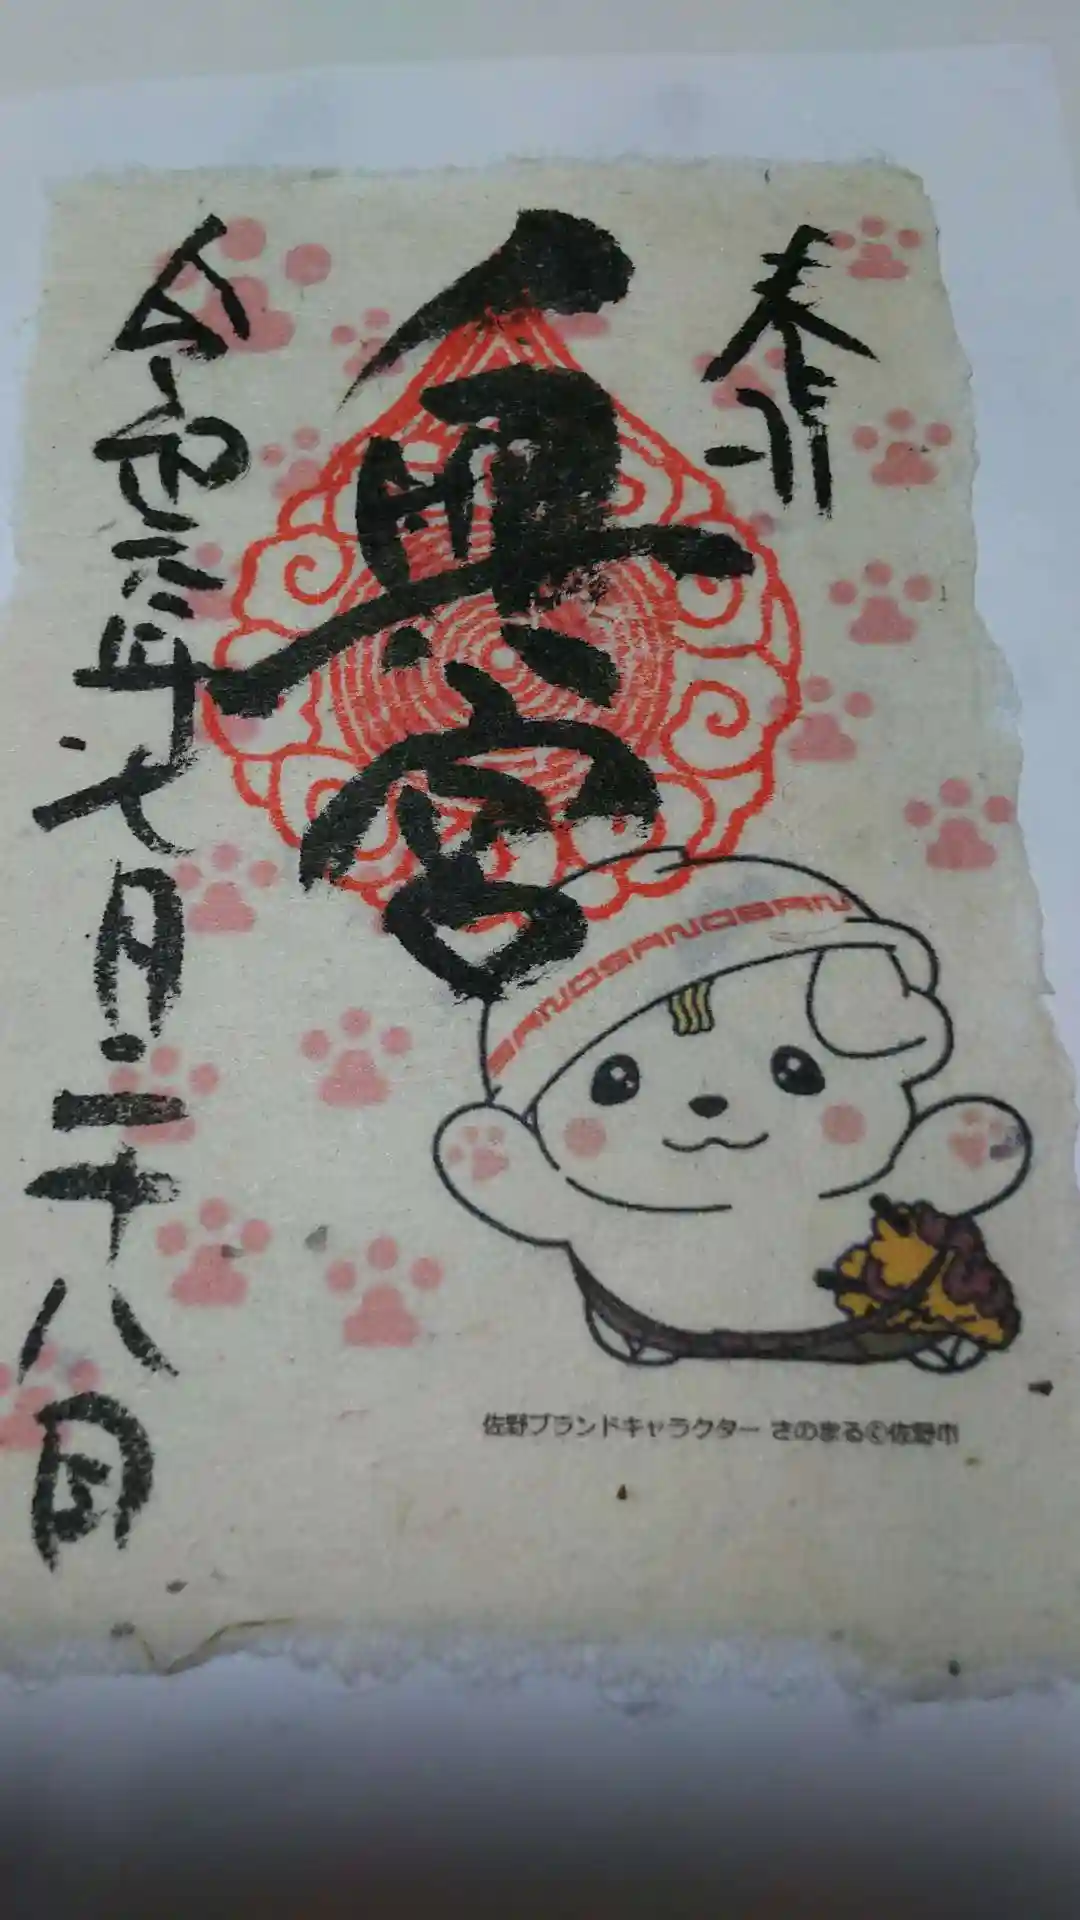 奉拝
奥宮
令和三年七月二十八日
SANOSANOSAN
佐野ブランドキャラクター さのまる©佐野市